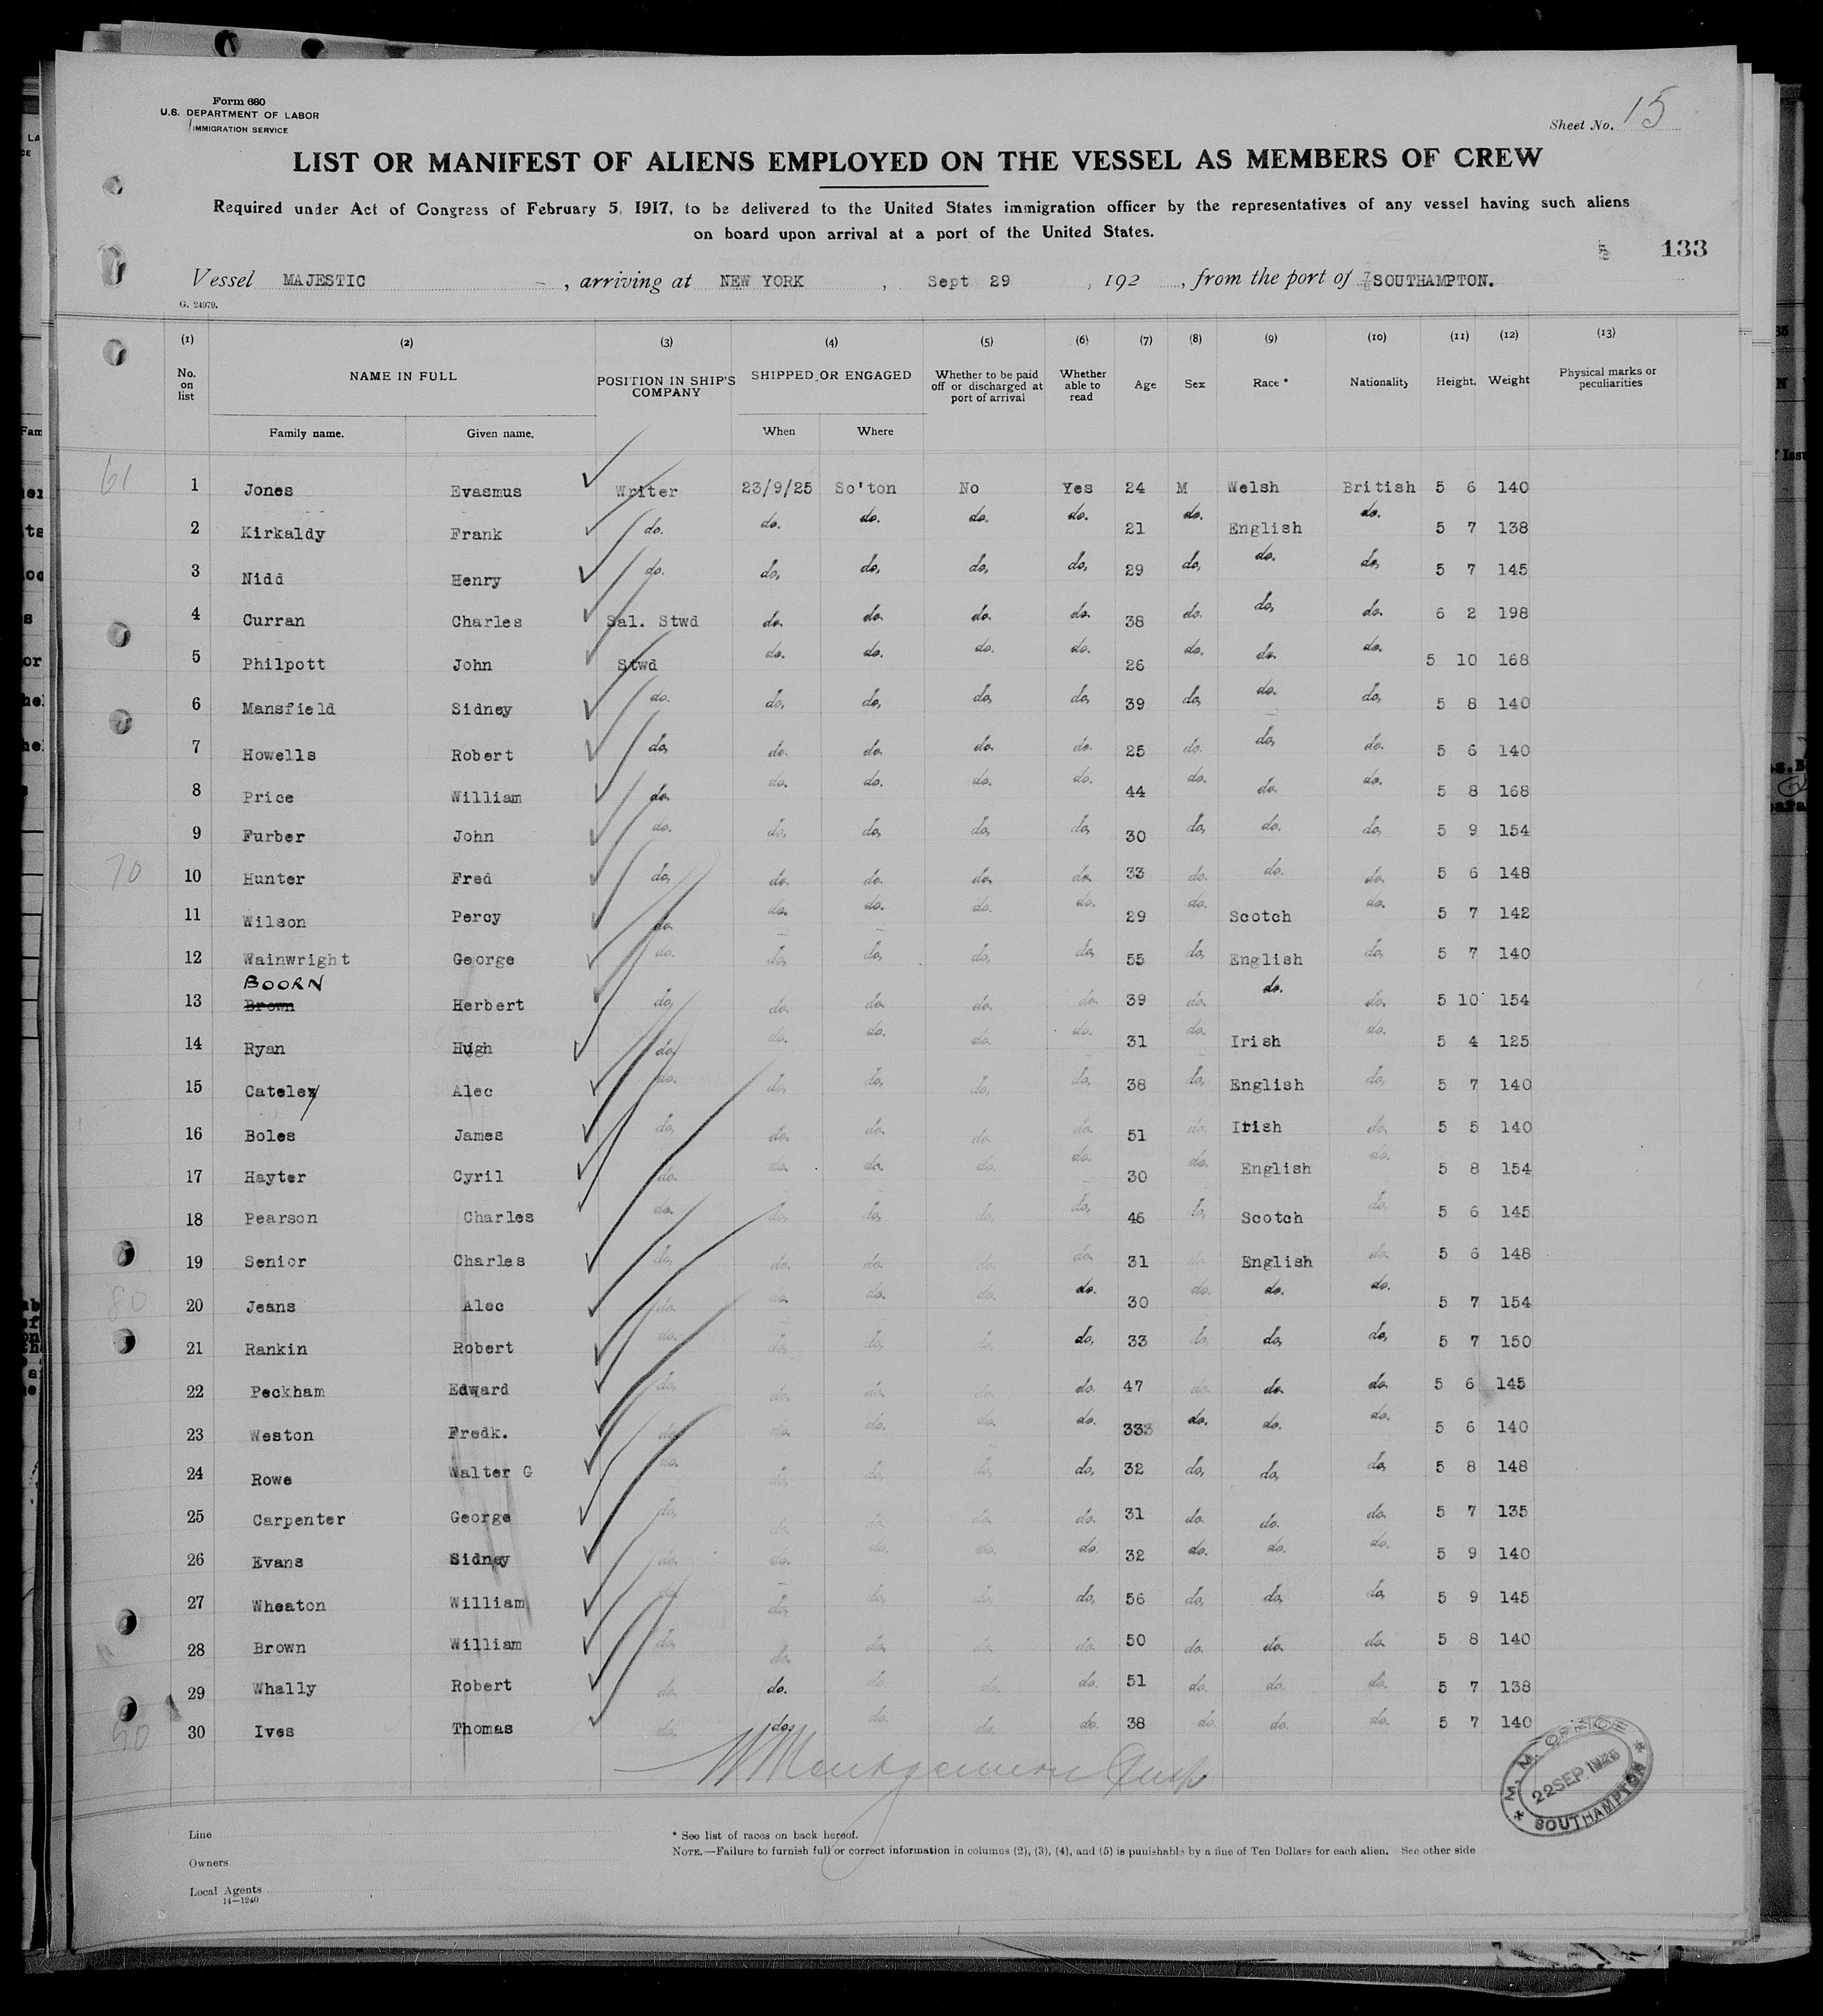 Form 680
U.S. DEPARTMENT OF LABOR
IMMIGRATION SERVICE
Sheet No. 15
LIST OR MANIFEST OF ALIENS EMPLOYED ON THE VESSEL AS MEMBERS OF CREW
Required under Act of Congress of February 5, 1917, to be delivered to the United States immigration officer by the representatives of any vessel having such aliens
on board upon arrival at a port of the United States.
133
Vessel MAJESTIC , arriving at NEW YORK , Sept 29 , 192 , from the port of SOUTHAMPTON.
G. 24979.
(1) (2) (3) (4) (5) (6) (7) (8) (9) (10) (11) (12) (13)
No. on list NAME IN FULL POSITION IN SHIP'S COMPANY SHIPPED OR ENGAGED Whether to be paid off or discharged at port of arrival Whether able to read Age Sex Race * Nationality Height. Weight Physical marks or peculiarities
Family name. Given name. When Where
61
1 Jones Evasmus Writer 23/9/25 So'ton No Yes 24 M Welsh British 5 6 140
2 Kirkaldy Frank do. do. do. do. do. 21 do. English do. 5 7 138
3 Nidd Henry do. do. do. do. do. 29 do. do. do. 5 7 145
4 Curran Charles Sal. Stwd do. do. do. do. 38 do. do. do. 6 2 198
5 Philpott John Stwd do. do. do. do. 26 do. do. do. 5 10 168
6 Mansfield Sidney do. do. do. do. do. 39 do. do. do. 5 8 140
7 Howells Robert do. do. do. do. do. 25 do. do. do. 5 6 140
8 Price William do. do. do. do. do. 44 do. do. do. 5 8 168
9 Furber John do. do. do. do. do. 30 do. do. do. 5 9 154
70
10 Hunter Fred do. do. do. do. do. 33 do. do. do. 5 6 148
11 Wilson Percy do. do. do. do. do. 29 do. Scotch do. 5 7 142
12 Wainwright George do. do. do. do. do. 55 do. English do. 5 7 140
BOORN
13 Brown Herbert do. do. do. do. do. 39 do. do. do. 5 10 154
14 Ryan Hugh do. do. do. do. do. 31 do. Irish do. 5 4 125
15 Cateley Alec do. do. do. do. do. 38 do. English do. 5 7 140
16 Boles James do. do. do. do. do. 51 do. Irish do. 5 5 140
17 Hayter Cyril do. do. do. do. do. 30 do. English do. 5 8 154
18 Pearson Charles do. do. do. do. do. 46 do. Scotch do. 5 6 145
19 Senior Charles do. do. do. do. do. 31 do. English do. 5 6 148
80
20 Jeans Alec do. do. do. do. do. 30 do. do. do. 5 7 154
21 Rankin Robert do. do. do. do. do. 33 do. do. do. 5 7 150
22 Peckham Edward do. do. do. do. do. 47 do. do. do. 5 6 145
23 Weston Fredk. do. do. do. do. do. 333 do. do. do. 5 6 140
24 Rowe Walter G do. do. do. do. do. 32 do. do. do. 5 8 148
25 Carpenter George do. do. do. do. do. 31 do. do. do. 5 7 135
26 Evans Sidney do. do. do. do. do. 32 do. do. do. 5 9 140
27 Wheaton William do. do. do. do. do. 56 do. do. do. 5 9 145
28 Brown William do. do. do. do. do. 50 do. do. do. 5 8 140
29 Whally Robert do. do. do. do. do. 51 do. do. do. 5 7 138
30 Ives Thomas do. do. do. do. do. 38 do. do. do. 5 7 140
M. M. OFFICE
22 SEP 1925
SOUTHAMPTON
Line
Owners
Local Agents
14—1240
* See list of races on back hereof.
NOTE.—Failure to furnish full or correct information in columns (2), (3), (4), and (5) is punishable by a fine of Ten Dollars for each alien. See other side